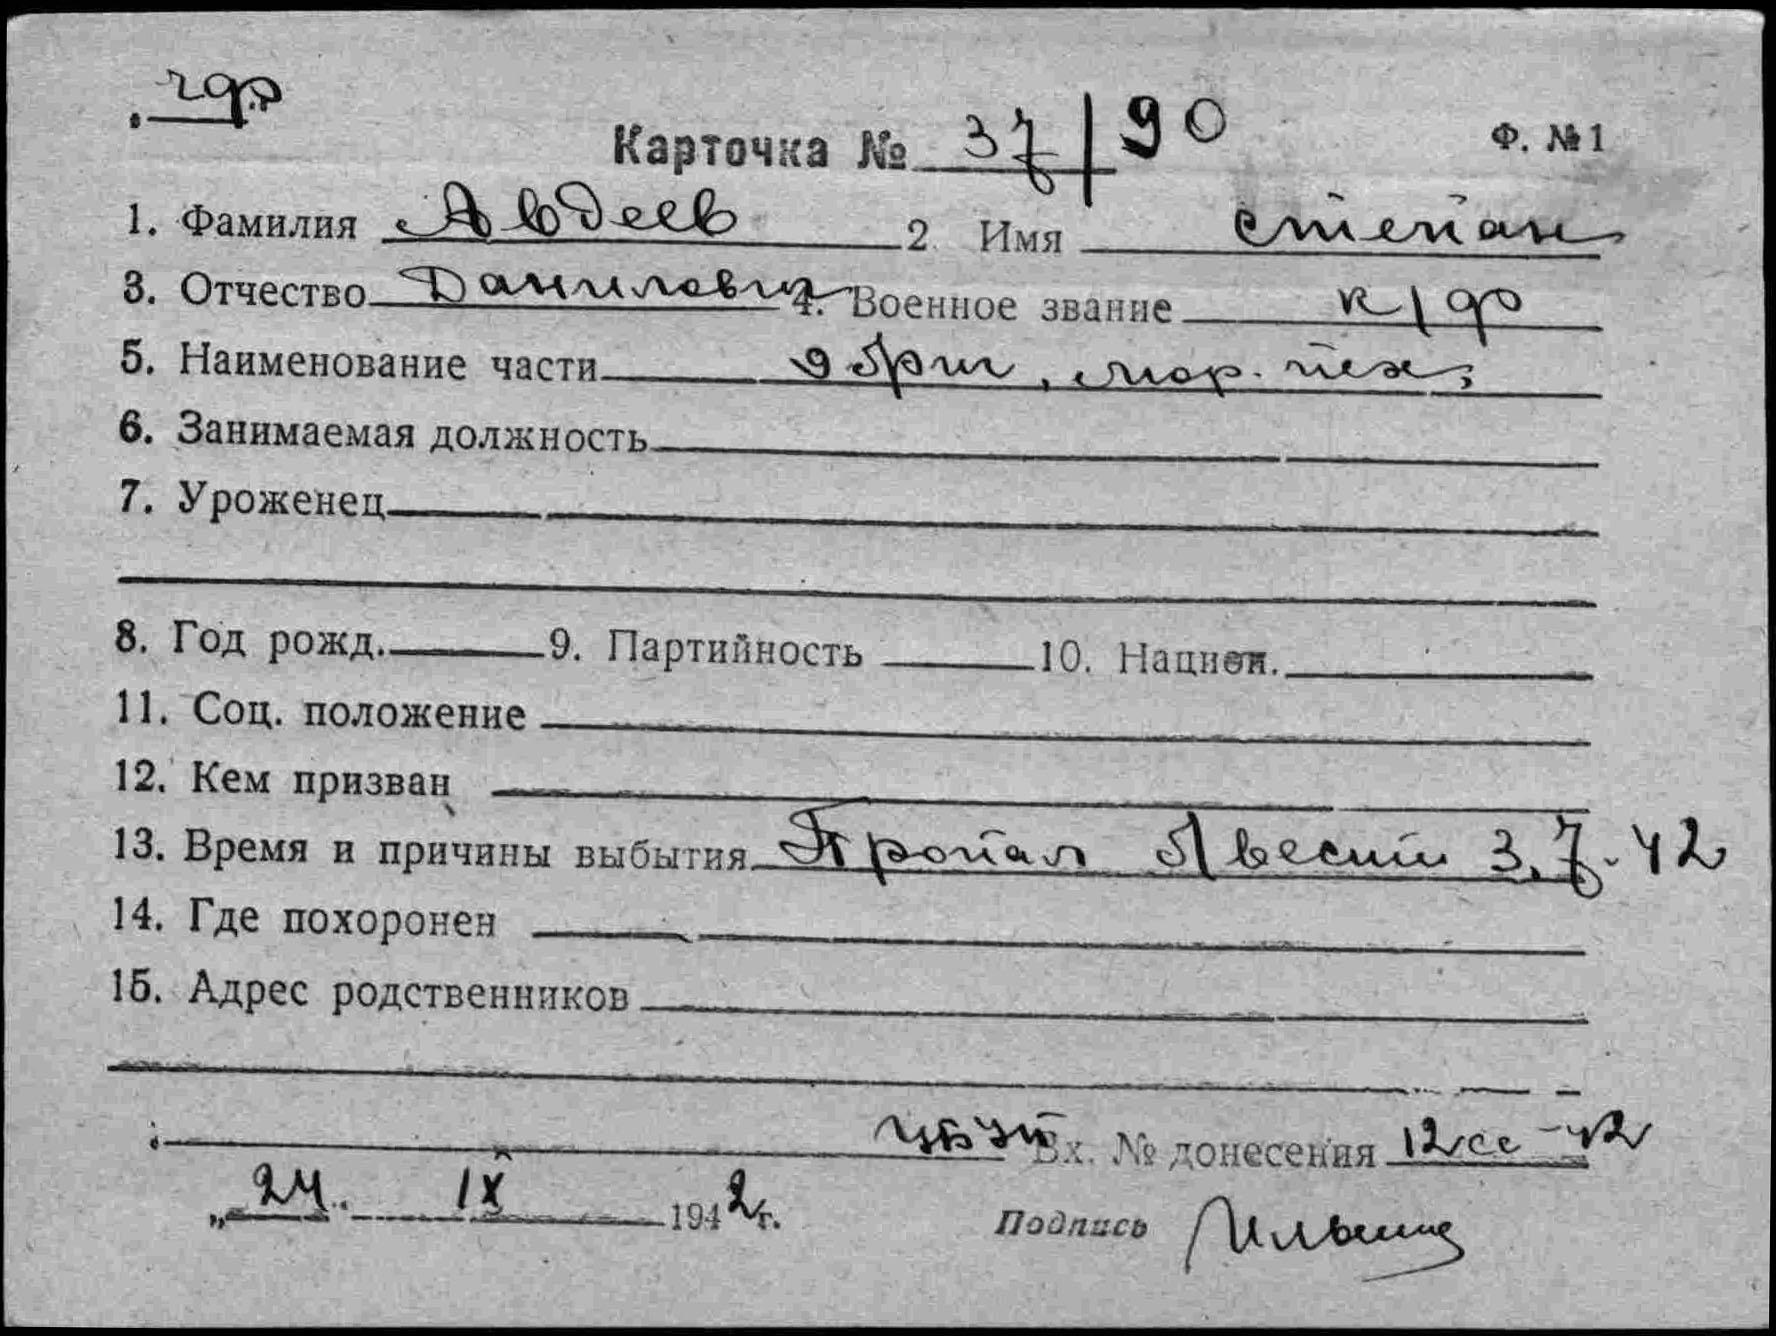 чф
Карточка № 37/90 Ф. № 1
1. Фамилия Авдеев 2 Имя Степан
3. Отчество Данилович 4. Военное звание к/ф
5. Наименование части 9 бриг. мор. пех.
6. Занимаемая должность
7. Уроженец
8. Год рожд. 9. Партийность 10. Национ.
11. Соц. положение
12. Кем призван
13. Время и причины выбытия Пропал б/вести 3.7.42
14. Где похоронен
15. Адрес родственников
Вх. № донесения 12сс-42
„24" IX 1942г.
Подпись